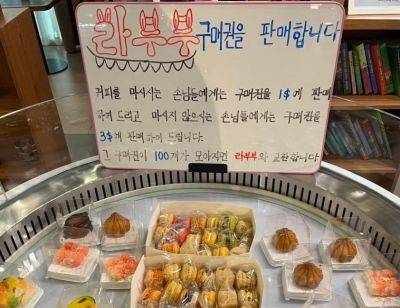 라부부 구매권을 판매합니다
커피를 마시시는 손님들에게는 구매권을 1$에 판매
하여 드리고 마시지 않으시는 손님들에게는 구매권을
3$에 판매하여 드립니다.
그 구매권이 100개가 모아지면 라부부와 교환합니다.